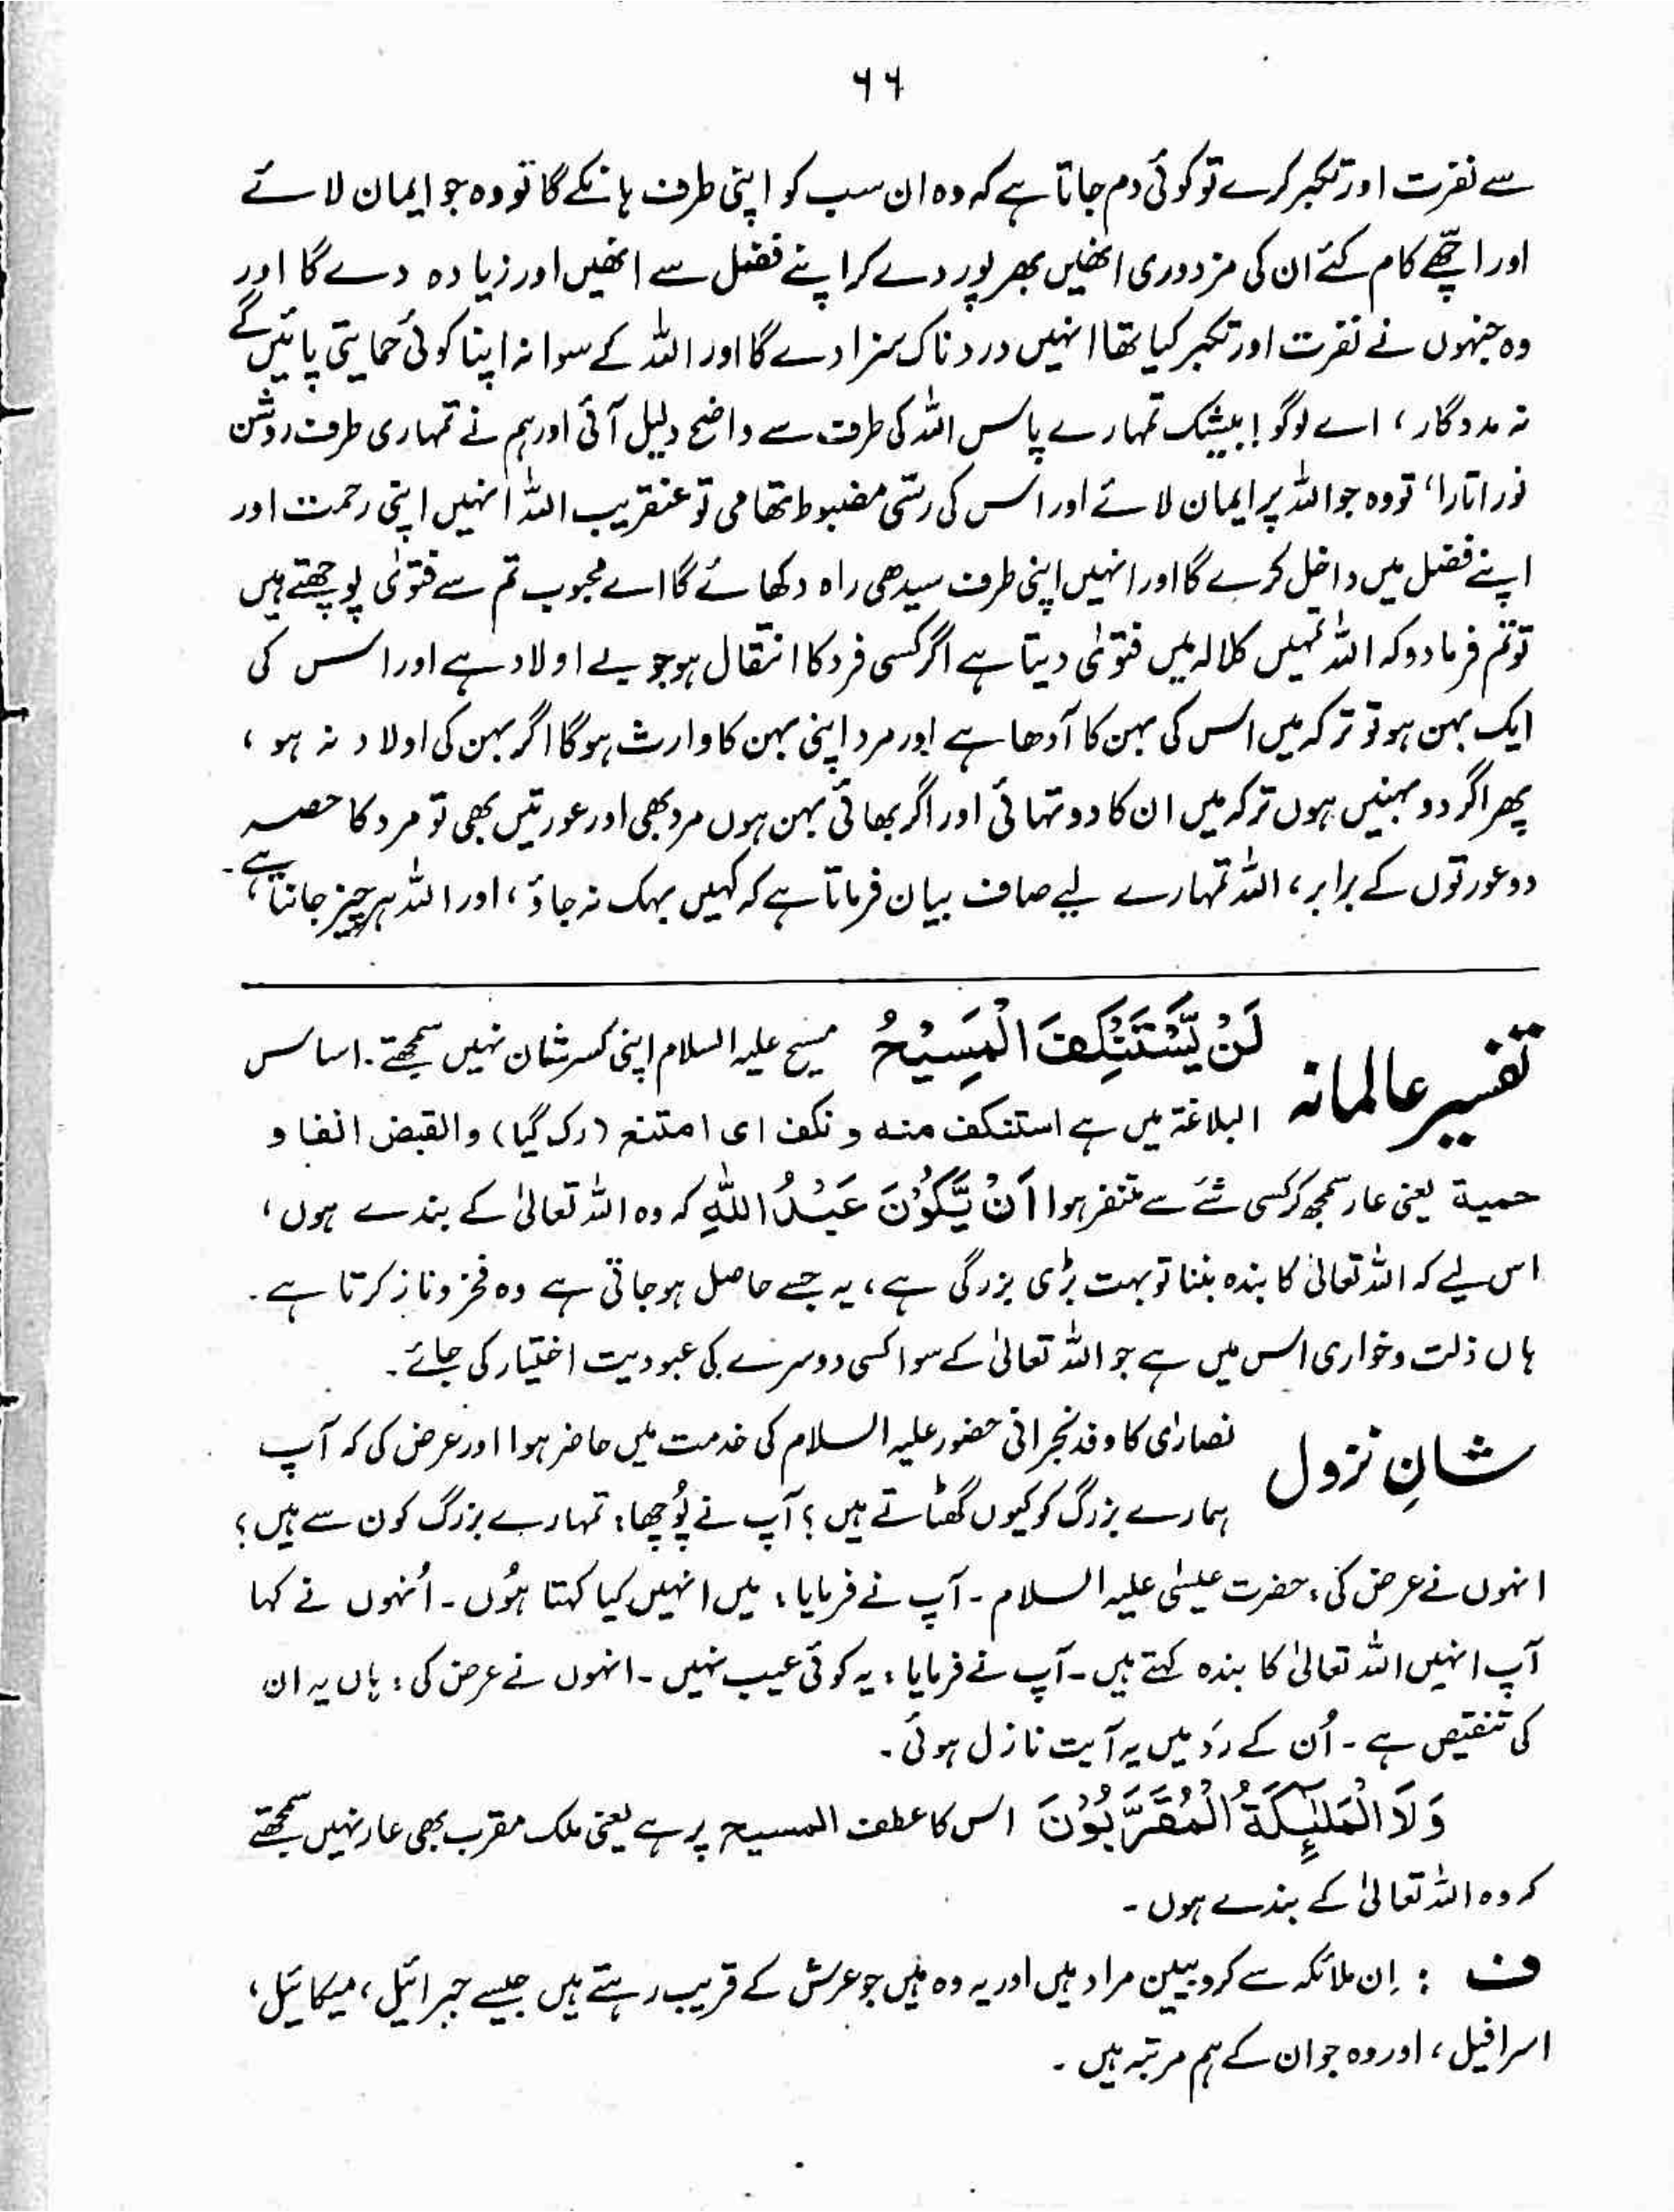 ۶۶
سے نفرت اور تکبر کرے تو کوئی دم جاتا ہے کہ وہ ان سب کو اپنی طرف ہانکے گا تو وہ جو ایمان لائے
اور اچھے کام کئے ان کی مزدوری انھیں بھرپور دے کر اپنے فضل سے انھیں اور زیادہ دے گا اور
وہ جنہوں نے نفرت اور تکبر کیا تھا انہیں دردناک سزا دے گا اور اللہ کے سوا نہ اپنا کوئی حمایتی پائیں گے
نہ مددگار ، اے لوگو ! بیشک تمہارے پاس اللہ کی طرف سے واضح دلیل آئی اور ہم نے تمہاری طرف روشن
نور اتارا، تو وہ جو اللہ پر ایمان لائے اور اس کی رسّی مضبوط تھامی تو عنقریب اللہ انہیں اپنی رحمت اور
اپنے فضل میں داخل کرے گا اور انہیں اپنی طرف سیدھی راہ دکھائے گا اے محبوب تم سے فتویٰ پوچھتے ہیں
تو تم فرما دو کہ اللہ تمہیں کلالہ میں فتویٰ دیتا ہے اگر کسی فرد کا انتقال ہو جو بے اولاد ہے اور اس کی
ایک بہن ہو تو ترکہ میں اس کی بہن کا آدھا ہے اور مرد اپنی بہن کا وارث ہوگا اگر بہن کی اولاد نہ ہو ،
پھر اگر دو بہنیں ہوں ترکہ میں ان کا دو تہائی اور اگر بھائی بہن ہوں مرد بھی اور عورتیں بھی تو مرد کا حصہ
دو عورتوں کے برابر ، اللہ تمہارے لیے صاف بیان فرماتا ہے کہ کہیں بہک نہ جاؤ ، اور اللہ ہر چیز جانتا ہے۔
تفسیر عالمانہ لَنْ يَّسْتَنْكِفَ الْمَسِيْحُ مسیح علیہ السلام اپنی کسر شان نہیں سمجھتے ۔ اساس
البلاغۃ میں ہے استنکف منه و نکف ای امتنع (رک گیا) والقبض انفا و
حمیة یعنی عار سمجھ کر کسی شئے سے متنفر ہوا اَنْ يَّكُوْنَ عَبْدُ اللّٰهِ کہ وہ اللہ تعالیٰ کے بندے ہوں ،
اس لیے کہ اللہ تعالیٰ کا بندہ بننا تو بہت بڑی بزرگی ہے ، یہ جسے حاصل ہو جاتی ہے وہ فخر و ناز کرتا ہے ۔
ہاں ذلت و خواری اس میں ہے جو اللہ تعالیٰ کے سوا کسی دوسرے کی عبودیت اختیار کی جائے ۔
شانِ نزول نصاریٰ کا وفد نجرانی حضور علیہ السلام کی خدمت میں حاضر ہوا اور عرض کی کہ آپ
ہمارے بزرگ کو کیوں گھٹاتے ہیں ؟ آپ نے پُوچھا : تمہارے بزرگ کون سے ہیں ؟
انہوں نے عرض کی : حضرت عیسٰی علیہ السلام ۔ آپ نے فرمایا : میں انہیں کیا کہتا ہُوں ۔ اُنہوں نے کہا
آپ انہیں اللہ تعالیٰ کا بندہ کہتے ہیں ۔ آپ نے فرمایا : یہ کوئی عیب نہیں ۔ انہوں نے عرض کی : ہاں یہ ان
کی تنقیص ہے ۔ اُن کے رَد میں یہ آیت نازل ہوئی ۔
وَلَا الْمَلٰٓئِكَةُ الْمُقَرَّبُوْنَ اس کا عطف المسیح پر ہے یعنی ملک مقرب بھی عار نہیں سمجھتے
کہ وہ اللہ تعالیٰ کے بندے ہوں ۔
ف : اِن ملائکہ سے کروبیین مراد ہیں اور یہ وہ ہیں جو عرش کے قریب رہتے ہیں جیسے جبرائیل ، میکائیل ،
اسرافیل ، اور وہ جو ان کے ہم مرتبہ ہیں ۔